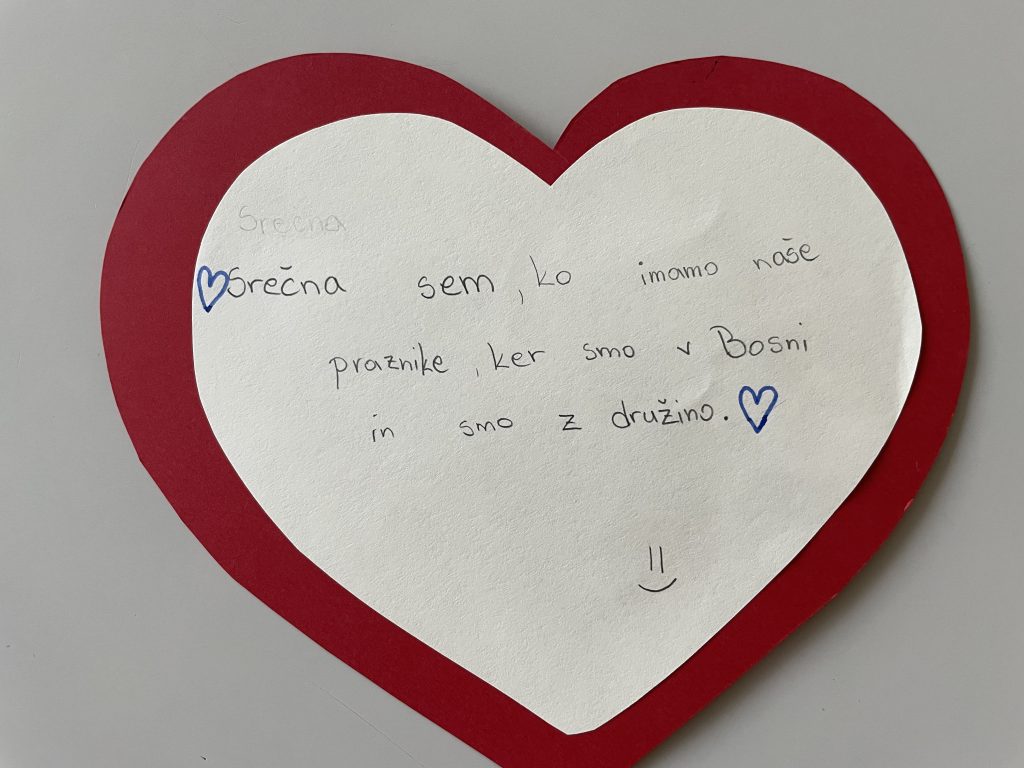 Srečna
Srečna sem, ko imamo naše
praznike, ker smo v Bosni
in smo z družino.